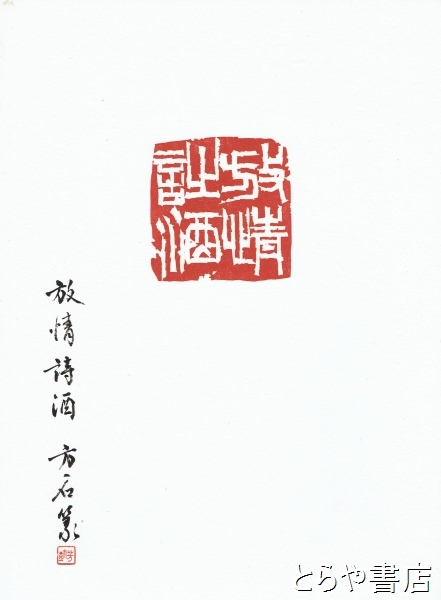 放情
詩酒
放情詩酒 方石篆
とらや書店